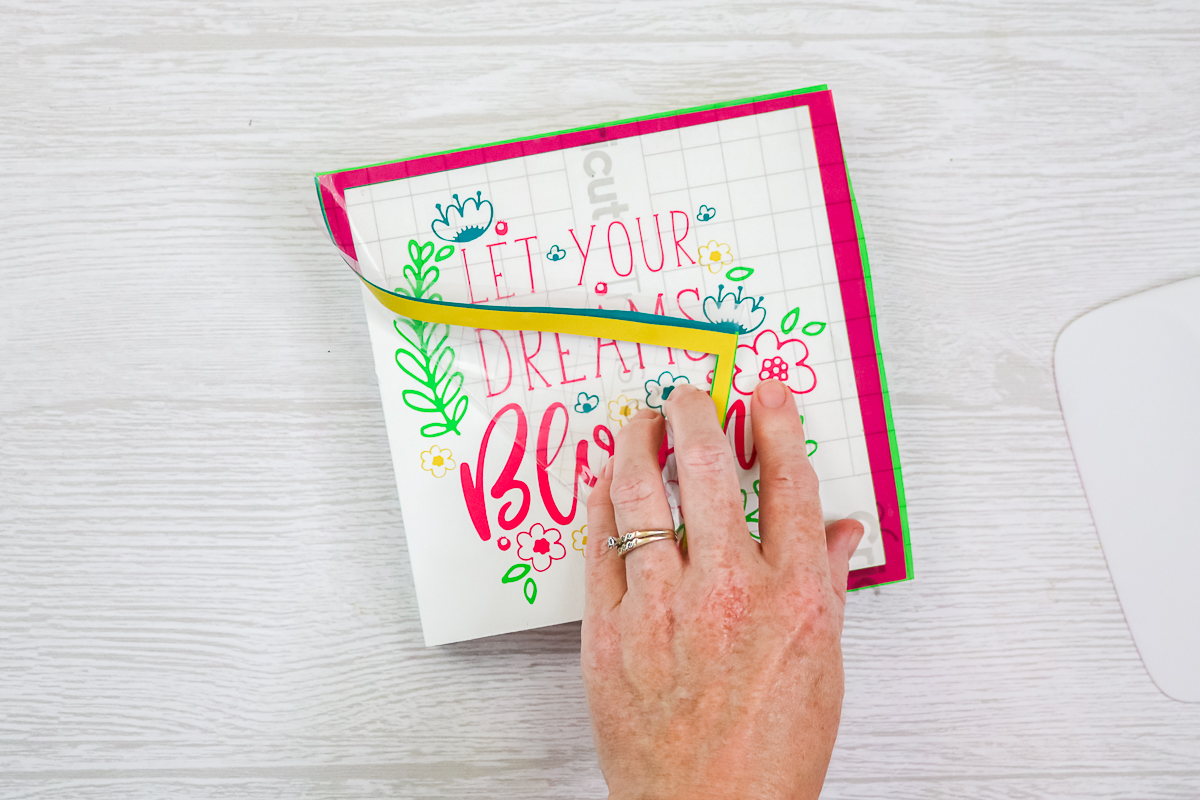 icut
LET YOUR
DREAMS
Bloom